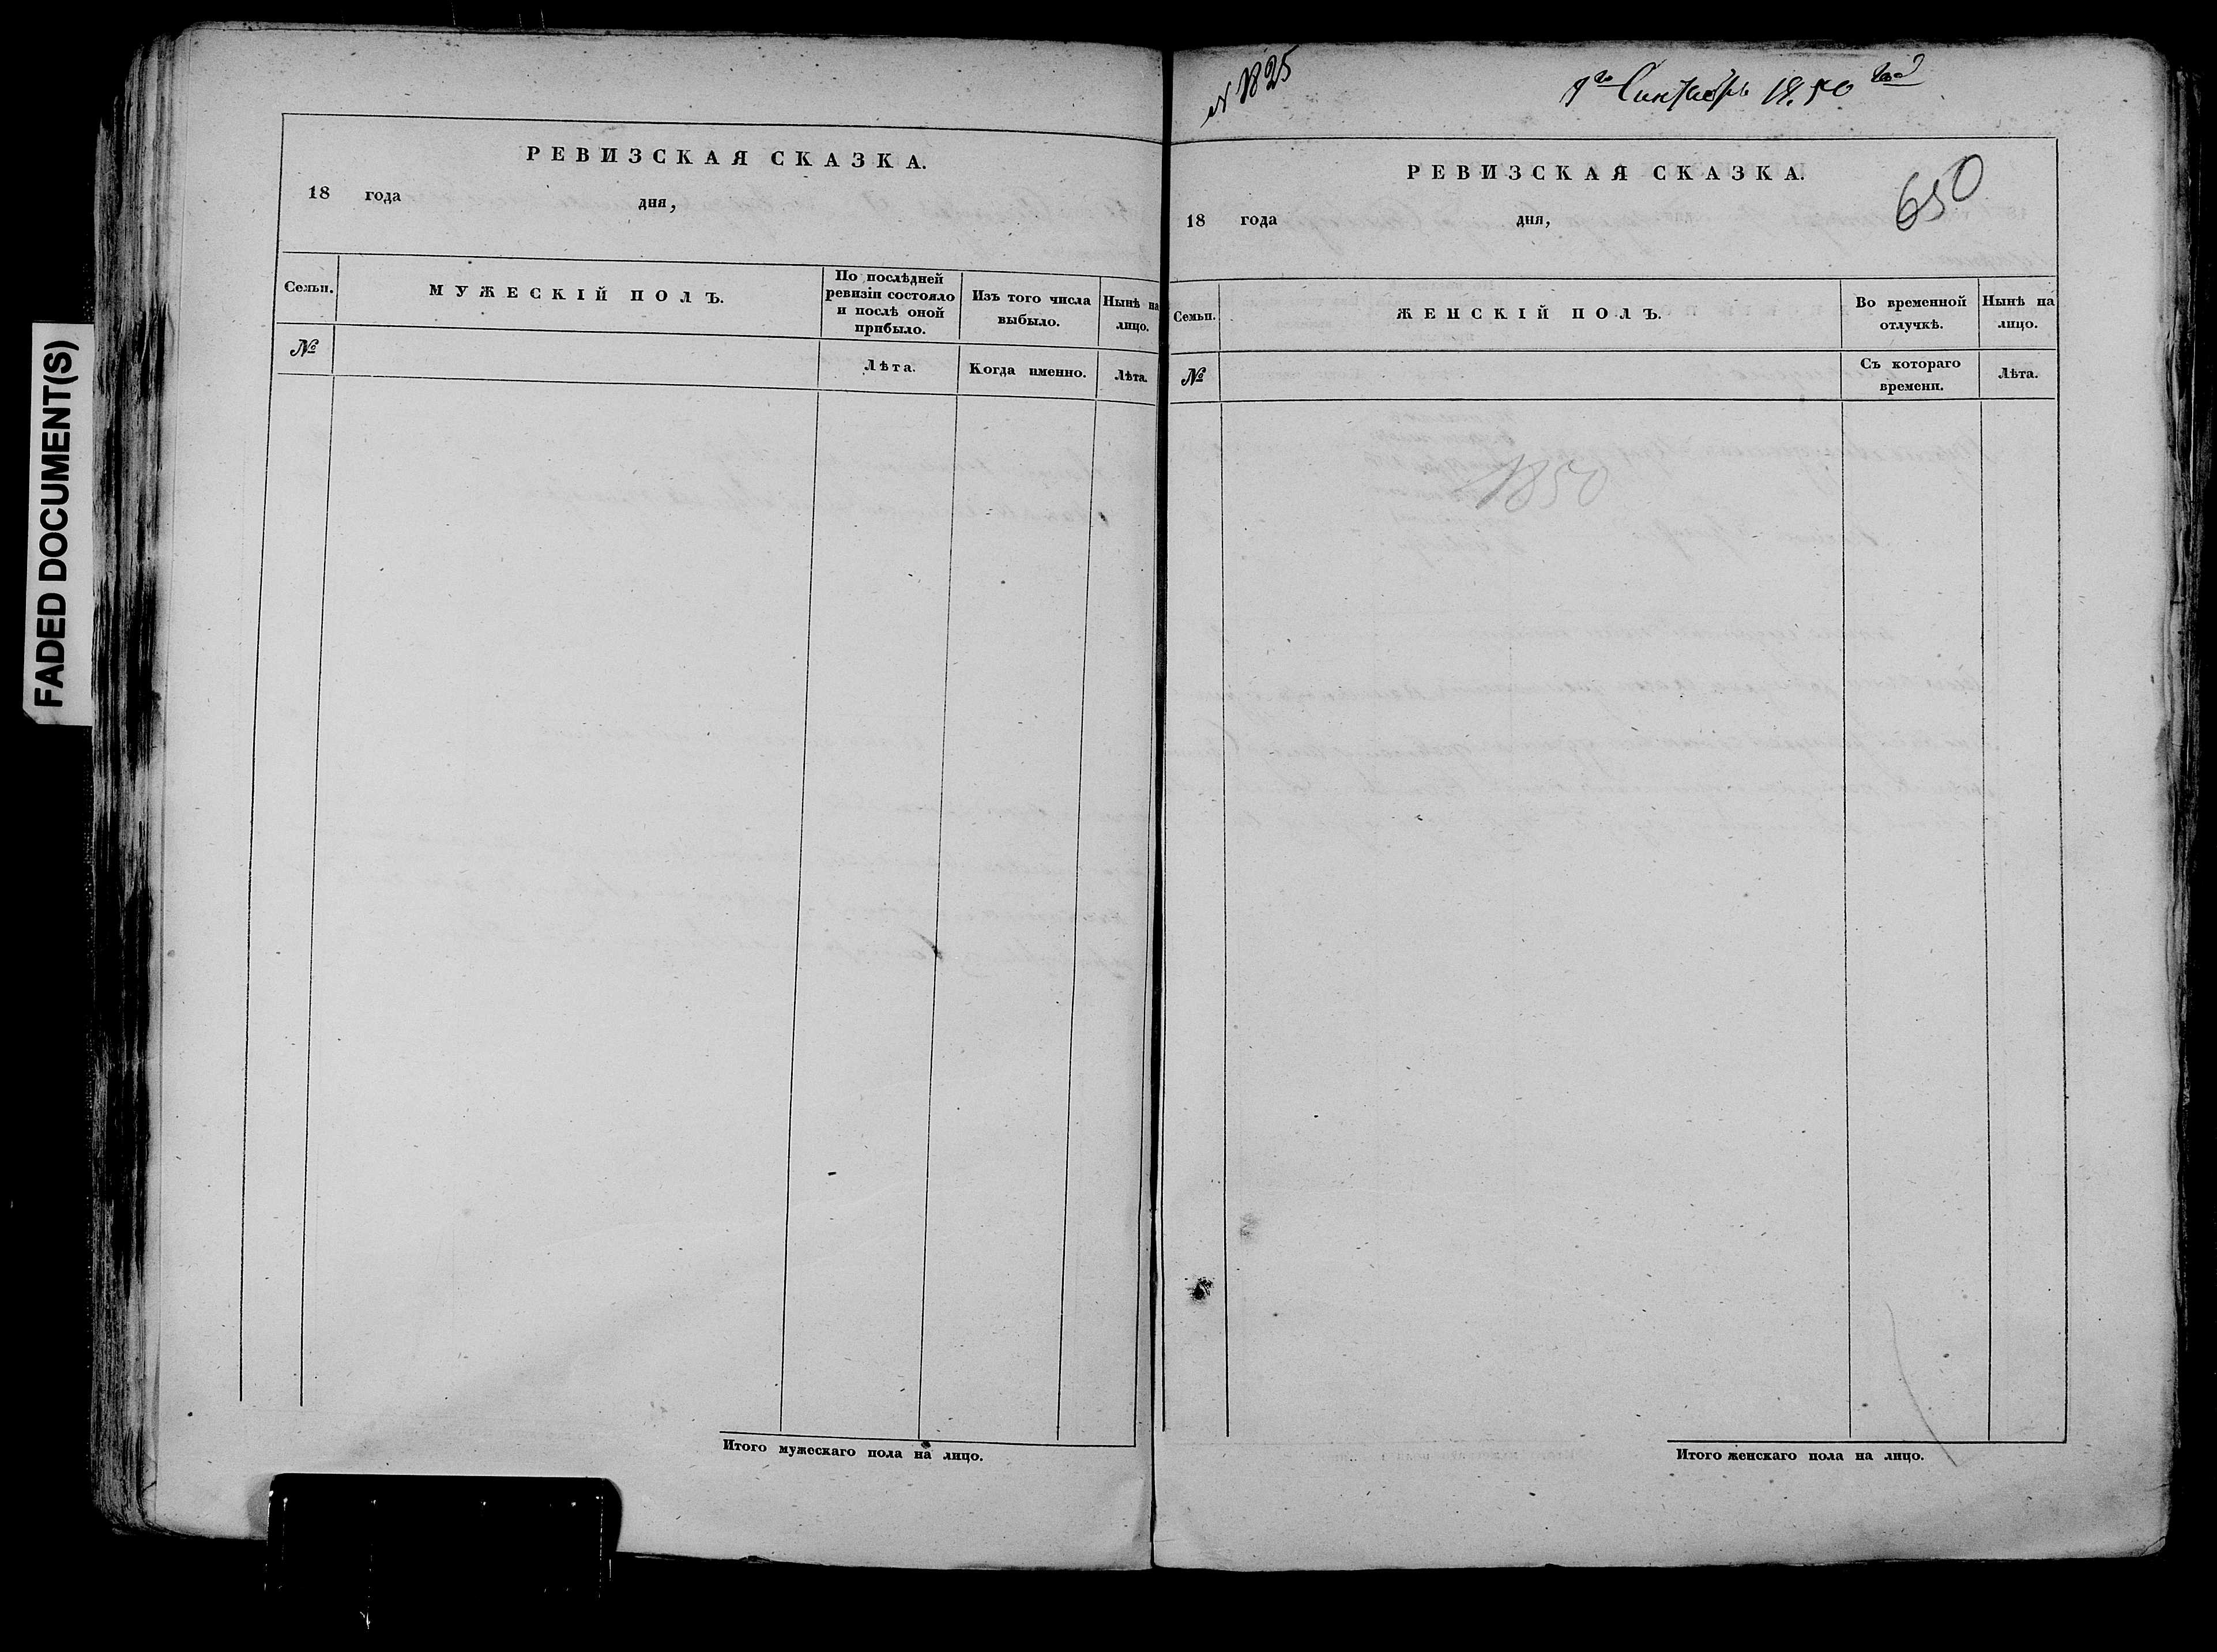 FADED DOCUMENT(S)
РЕВИЗСКАЯ СКАЗКА.
18 года дня,
Семьи.
МУЖЕСКІЙ ПОЛЪ.
По послѣдней
ревизіи состояло
и послѣ оной
прибыло.
Изъ того числа
выбыло.
Нынѣ на
лицо.
№
Лѣта.
Когда именно.
Лѣта.
Итого мужескаго пола на лицо.
N 1825
1850
РЕВИЗСКАЯ СКАЗКА.
650
18 года дня,
Семьи.
ЖЕНСКІЙ ПОЛЪ.
Во временной
отлучкѣ.
Нынѣ на
лицо.
№
Съ котораго
времени.
Лѣта.
1850
Итого женскаго пола на лицо.